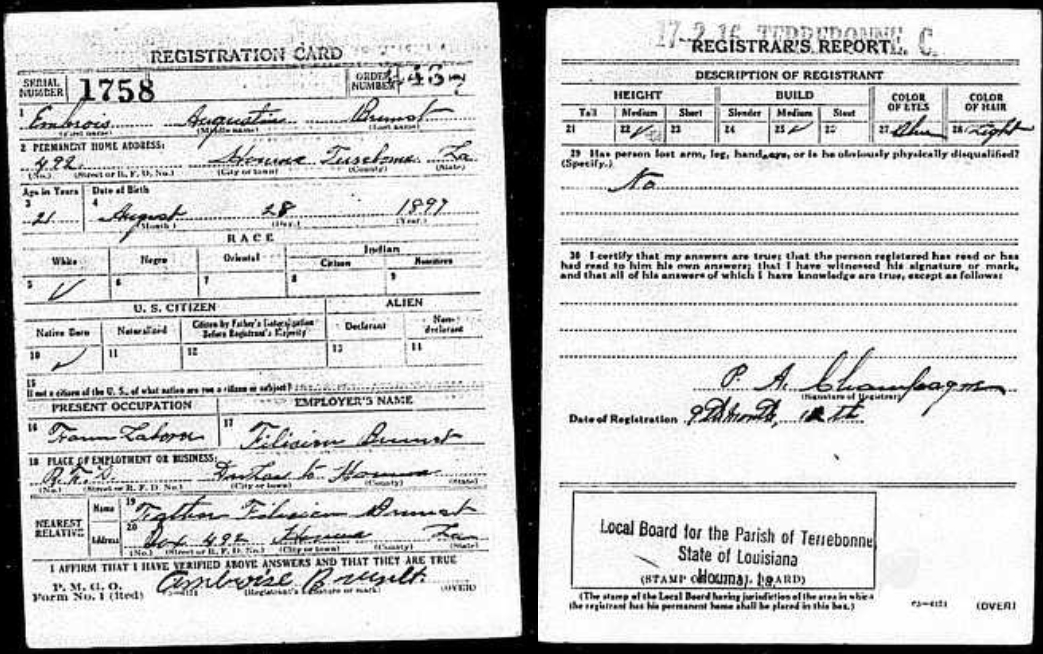 REGISTRATION CARD
SERIAL NUMBER 1758 ORDER NUMBER
1 Embrois Augustin Brunst
(First name) (Middle name) (Last name)
2 PERMANENT HOME ADDRESS:
492 Houma La
(No.) (Street or R. F. D. No.) (City or town) (County) (State)
Age in Years Date of Birth
3 4
21 August 28 1897
(Month) (Day) (Year)
RACE
White Negro Oriental Indian
Citizen Noncitizen
5 ✓ 6 7 8 9
U. S. CITIZEN ALIEN
Native Born Naturalized Citizen by Father's Naturalization Before Registrant's Majority Declarant Non-declarant
10 ✓ 11 12 13 14
15
If not a citizen of the U. S., of what nation are you a citizen or subject?
PRESENT OCCUPATION EMPLOYER'S NAME
16 Farm Labora 17 Filician Brunst
18 PLACE OF EMPLOYMENT OR BUSINESS:
Houma
(No.) (Street or R. F. D. No.) (City or town) (County) (State)
NEAREST RELATIVE Name 19 Father Filician Brunst
Address 20 Box 492 Houma La
(No.) (Street or R. F. D. No.) (City or town) (County) (State)
I AFFIRM THAT I HAVE VERIFIED ABOVE ANSWERS AND THAT THEY ARE TRUE
P. M. G. O.
Form No. 1 (Red) Ambroise Brunet
(Registrant's signature or mark) (OVER)
17-2-16 TERREBONNE, C.
REGISTRAR'S REPORT
DESCRIPTION OF REGISTRANT
HEIGHT BUILD COLOR OF EYES COLOR OF HAIR
Tall Medium Short Slender Medium Stout
21 22 ✓ 23 24 25 ✓ 26 27 Blue 28 Light
29 Has person lost arm, leg, hand, eye, or is he obviously physically disqualified?
(Specify.)
No
30 I certify that my answers are true; that the person registered has read or has
had read to him his own answers; that I have witnessed his signature or mark,
and that all of his answers of which I have knowledge are true, except as follows:
P. A. Champagne
(Signature of Registrar)
Date of Registration
Local Board for the Parish of Terrebonne
State of Louisiana
Houma, La.
(STAMP OF LOCAL BOARD)
(The stamp of the Local Board having jurisdiction of the area in which
the registrant has his permanent home shall be placed in this box.)
(OVER)